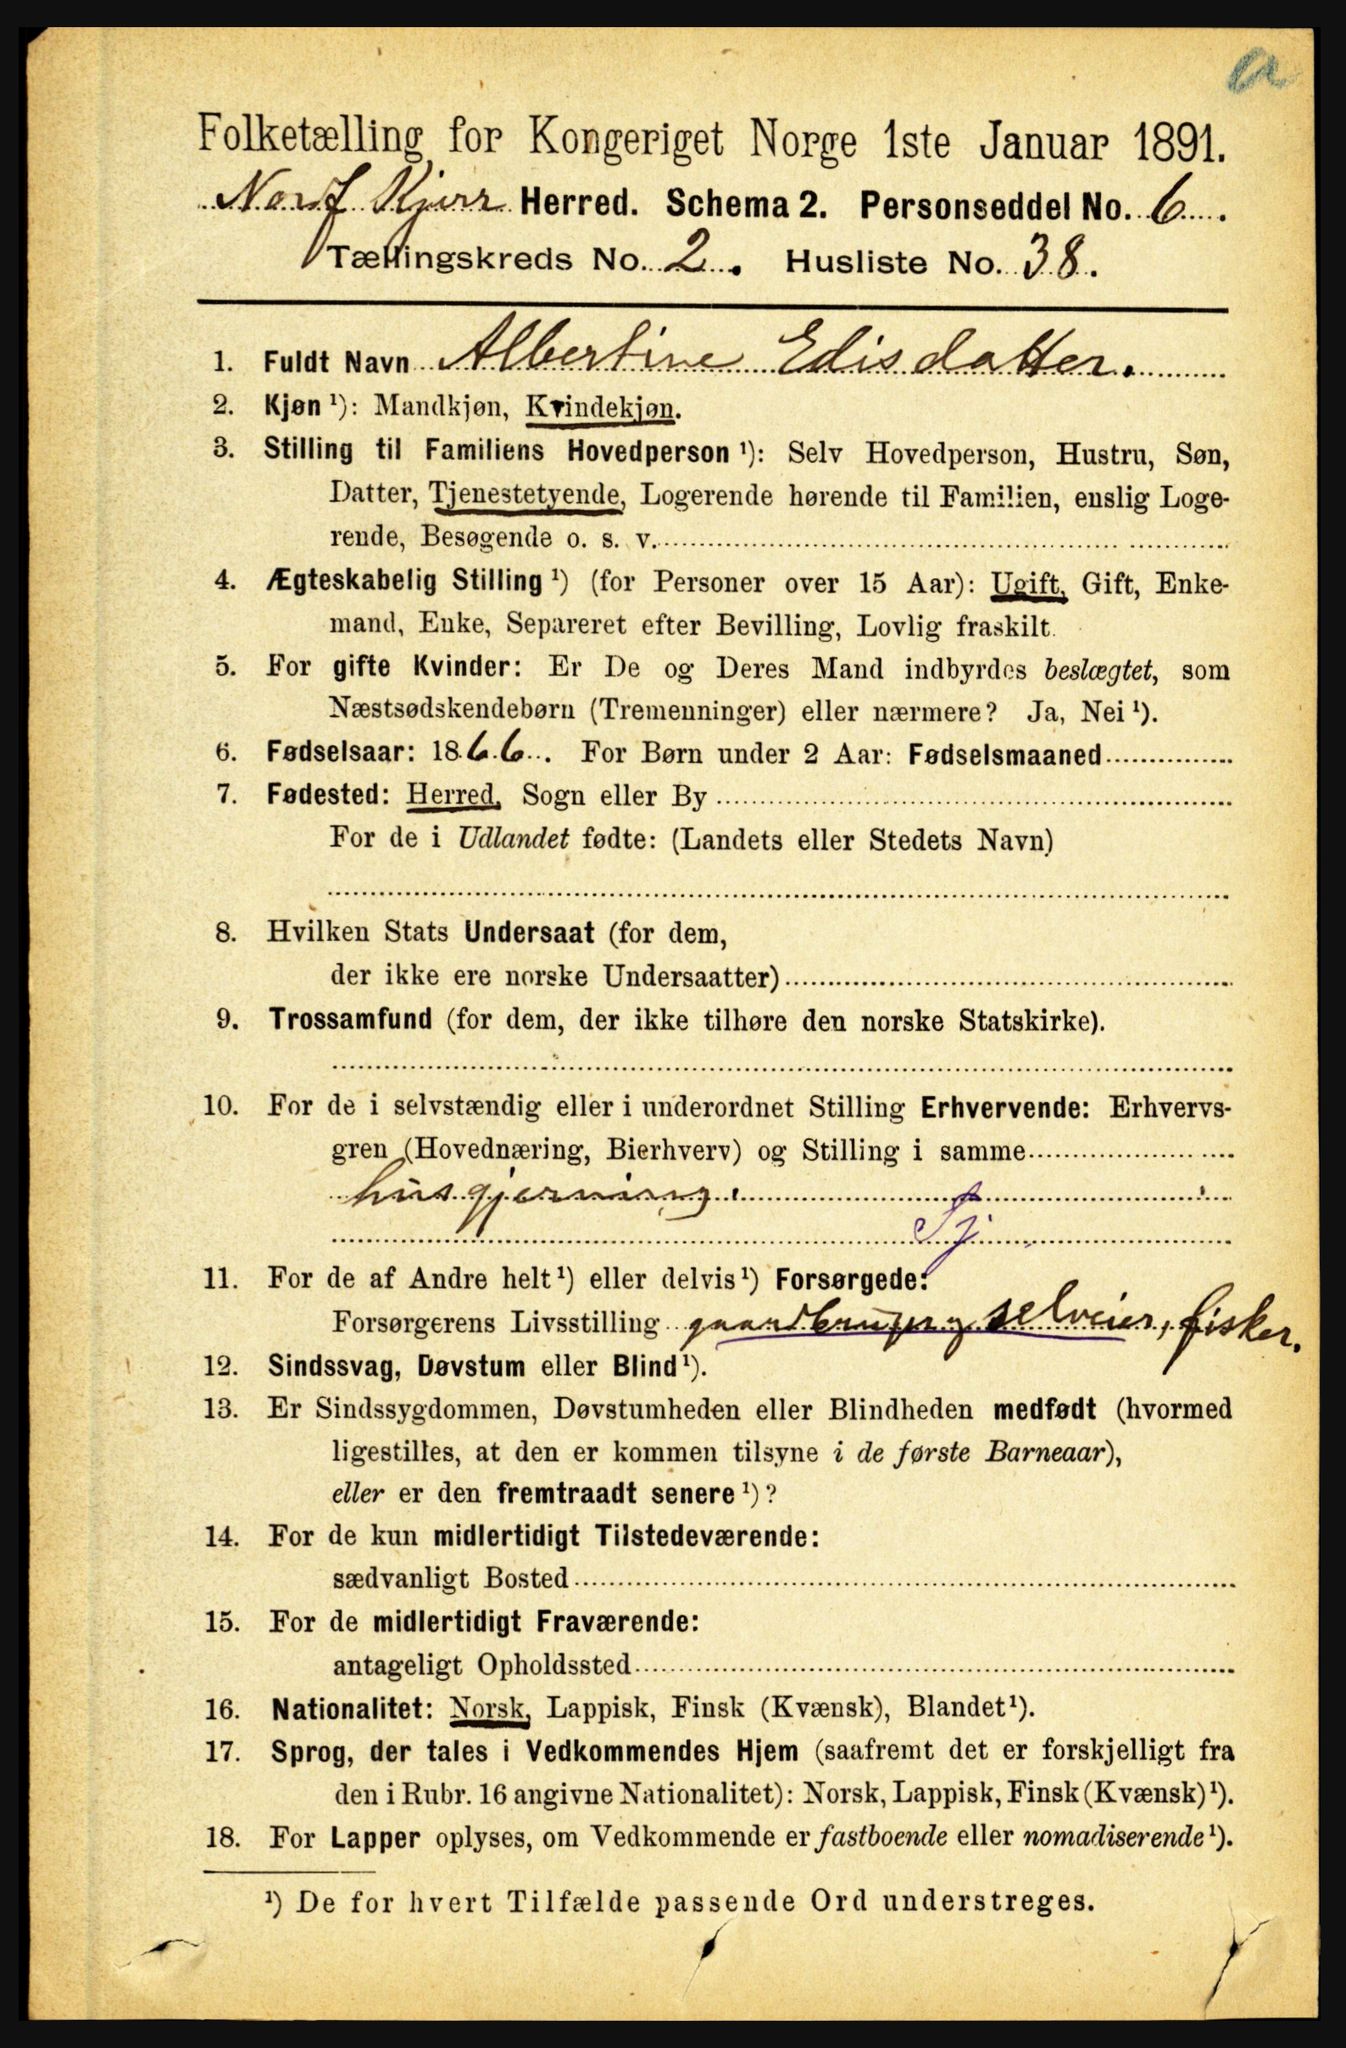 a
Folketælling for Kongeriget Norge 1ste Januar 1891.
Herred. Schema 2. Personseddel No. 6.
Tællingskreds No. 2. Husliste No. 38.
1. Fuldt Navn Albertine Edisdatter.
2. Kjøn ¹): Mandkjøn, Kvindekjøn.
3. Stilling til Familiens Hovedperson ¹): Selv Hovedperson, Hustru, Søn,
Datter, Tjenestetyende, Logerende hørende til Familien, enslig Loge-
rende, Besøgende o. s. v.
4. Ægteskabelig Stilling ¹) (for Personer over 15 Aar): Ugift, Gift, Enke-
mand, Enke, Separeret efter Bevilling, Lovlig fraskilt.
5. For gifte Kvinder: Er De og Deres Mand indbyrdes beslægtet, som
Næstsødskendebørn (Tremenninger) eller nærmere? Ja, Nei ¹).
6. Fødselsaar: 1866. For Børn under 2 Aar: Fødselsmaaned
7. Fødested: Herred, Sogn eller By
For de i Udlandet fødte: (Landets eller Stedets Navn)
8. Hvilken Stats Undersaat (for dem,
der ikke ere norske Undersaatter)
9. Trossamfund (for dem, der ikke tilhøre den norske Statskirke).
10. For de i selvstændig eller i underordnet Stilling Erhvervende: Erhvervs-
gren (Hovednæring, Bierhverv) og Stilling i samme
husgjerning.
Tj
11. For de af Andre helt ¹) eller delvis ¹) Forsørgede:
Forsørgerens Livsstilling gaardbruger, selveier, fisker.
12. Sindssvag, Døvstum eller Blind ¹).
13. Er Sindssygdommen, Døvstumheden eller Blindheden medfødt (hvormed
ligestilles, at den er kommen tilsyne i de første Barneaar),
eller er den fremtraadt senere ¹)?
14. For de kun midlertidigt Tilstedeværende:
sædvanligt Bosted
15. For de midlertidigt Fraværende:
antageligt Opholdssted
16. Nationalitet: Norsk, Lappisk, Finsk (Kvænsk), Blandet ¹).
17. Sprog, der tales i Vedkommendes Hjem (saafremt det er forskjelligt fra
den i Rubr. 16 angivne Nationalitet): Norsk, Lappisk, Finsk (Kvænsk) ¹).
18. For Lapper oplyses, om Vedkommende er fastboende eller nomadiserende ¹).
¹) De for hvert Tilfælde passende Ord understreges.